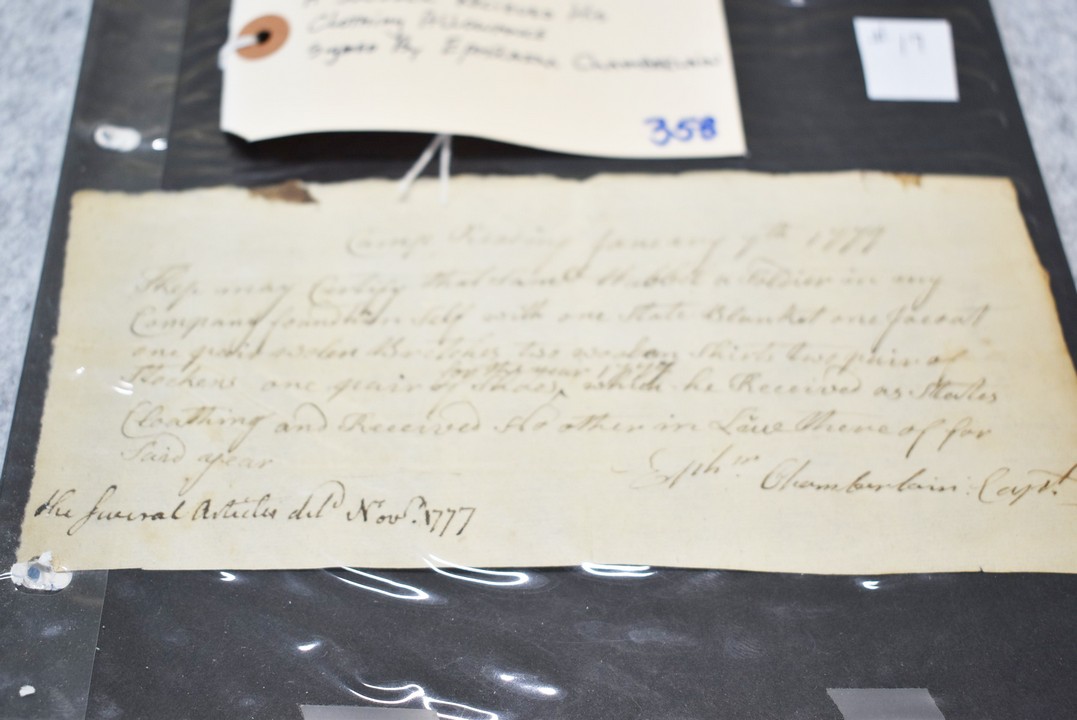 Clothing Allowance
Signed By Ephraim Chamberlain
358
# 19
Camp Reading January 7th 1779
This may Certify that Hubbil a Soldier in my
Company found him Self with one State Blanket one
one pair woolen Britches two woolen Shirts two pair of
for the year 1777
Stockens one pair of Shoes ^ which he Received as States
Cloathing and Received No other in Lieu thereof for
Said year
Ephm Chamberlain Capt.
the several Articles deld Novr. 1777